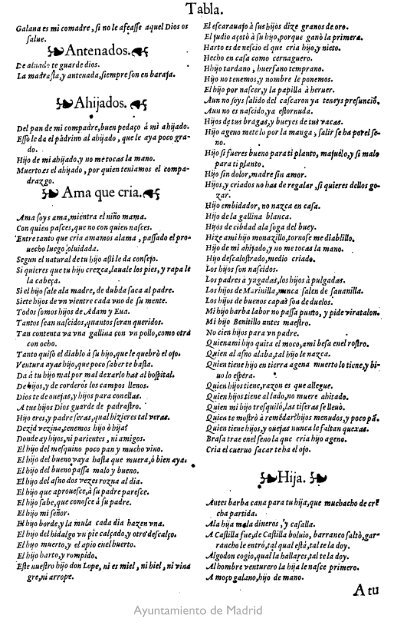 Tabla.
Galana es mi comadre, si no le afeasse aquel Dios os
salue.
Antenados.
De alnado te guarde dios.
La madrasta, y antenada, siempre son en baraja.
Ahijados.
Del pan de mi compadre, buen pedaço á mi ahijado.
do.
Hijo de mi ahijado, y no me tocas la mano.
Muerto es el ahijado, por quien teniamos el compa-
drazgo.
Ama que cria.
Ama soys ama, mientra el niño mama.
Con quien pasces, que no con quien nasces.
Entre tanto que cria amamos alama, passado el pro-
uecho luego oluidada.
Segun el natural de tu hijo assi le da consejo.
Si quieres que tu hijo crezca, lauale los pies, y rapa le
la cabeça.
Si el hijo sale ala madre, de dubda saca al padre.
Siete hijos de vn vientre cada vno de su mente.
Todos somos hijos de Adam y Eua.
Tantos sean nascidos, quantos seran queridos.
Tan contenta va vna gallina con vn pollo, como otra
con ocho.
Tanto quiso el diablo á su hijo, que le quebró el ojo.
Ventura ayas hijo, que poco saber te basta.
Da á tu hijo mal por mal dexarlo has al hospital.
De hijos, y de corderos los campos llenos.
Dios te de ouejas, y hijos para conellas.
A tus hijos Dios guarde de padrastro.
Hijo eres, y padre seras, qual hizieres tal veras.
Dezid vezina, tenemos hijo ò hija?
Donde ay hijos, ni parientes, ni amigos.
El hijo del mesquino poco pan y mucho vino.
El hijo del bueno vaya hasta que muera, ò bien aya.
El hijo del bueno passa malo y bueno.
El hijo del asno dos vezes rozna al dia.
El hijo que aprouesce, á su padre paresce.
El hijo sabe, que conosce á su padre.
El hijo mi señor.
El hijo borde, y la mula cada dia hazen vna.
El hijo del hidalgo vn pie calçado, y otro descalço.
El hijo muerto, y el apio enel huerto.
El hijo harto, y rompido.
Este nuestro hijo don Lope, ni es miel, ni hiel, ni vina
gre, ni arrope.
El escarauajo á sus hijos dize granos de oro.
El judio açotó à su hijo, porque ganò la primera.
Harto es de nescio el que cria hijo, y nieto.
Hecho en casa como cernaguero.
Hijo tardano, huerfano temprano.
Hijo no tenemos, y nombre le ponemos.
El hijo por nascer, y la papilla á heruer.
Aun no soys salido del cascaron ya teneys presunciõ.
Aun no es nascido, ya estornuda.
Hijos de tus bragas, y bueyes de tus vacas.
Hijo ageno mete lo por la manga, salir se ha por el se-
no.
Hijo si fueres bueno para ti planto, majuelo, y si malo
para ti planto.
Hijo sin dolor, madre sin amor.
Hijos, y criados no has de regalar, si quieres dellos go-
zar.
Hijo embidador, no nazca en casa.
Hijo de la gallina blanca.
Hijos de cibdad ala soga del buey.
Hize ami hijo monazillo, tornose me diablillo.
Hijo de mi ahijado, y no me tocas la mano.
Hijo descalostrado, medio criado.
Los hijos son nascidos.
Los padres a yagadas, los hijos à pulgadas.
Los hijos de Marinilla, nunca salen de sauanilla.
Los hijos de buenos capa son de duelos.
Mi hijo barba labor no passa punto, y pide viratalon.
Mi hijo Benitillo antes maestro.
No cien hijos para vn padre.
Quien ami hijo quita el moco, ami besa enel rostro.
Quien al asno alaba, tal hijo le nazca.
Quien tiene hijo en tierra agena muerto lo tiene, y bi-
uo lo espera.
Quien hijos tiene, razon es que allegue.
Quien hijos tiene al lado, no muere ahitado.
Quien mi hijo tresquiló, las tiseras se lleuò.
Quien tiene hijos, y ouejas nunca le faltan quexas.
Brasa trae enel seno la que cria hijo ageno.
Cria el cueruo sacar te ha el ojo.
Hija.
Antes barba cana para tu hija, que muchacho de crē
cha partida.
Ala hija mala dineros, y casalla.
A Castilla fue, de Castilla boluio, barranco saltò, gar-
rancho le entrò, tal qual està, tal te la doy.
Algodon cogio, qual la hallares, tal te la doy.
Al hombre venturero la hija le nasce primero.
A moço galano, hijo de mano.
A tu
Ayuntamiento de Madrid